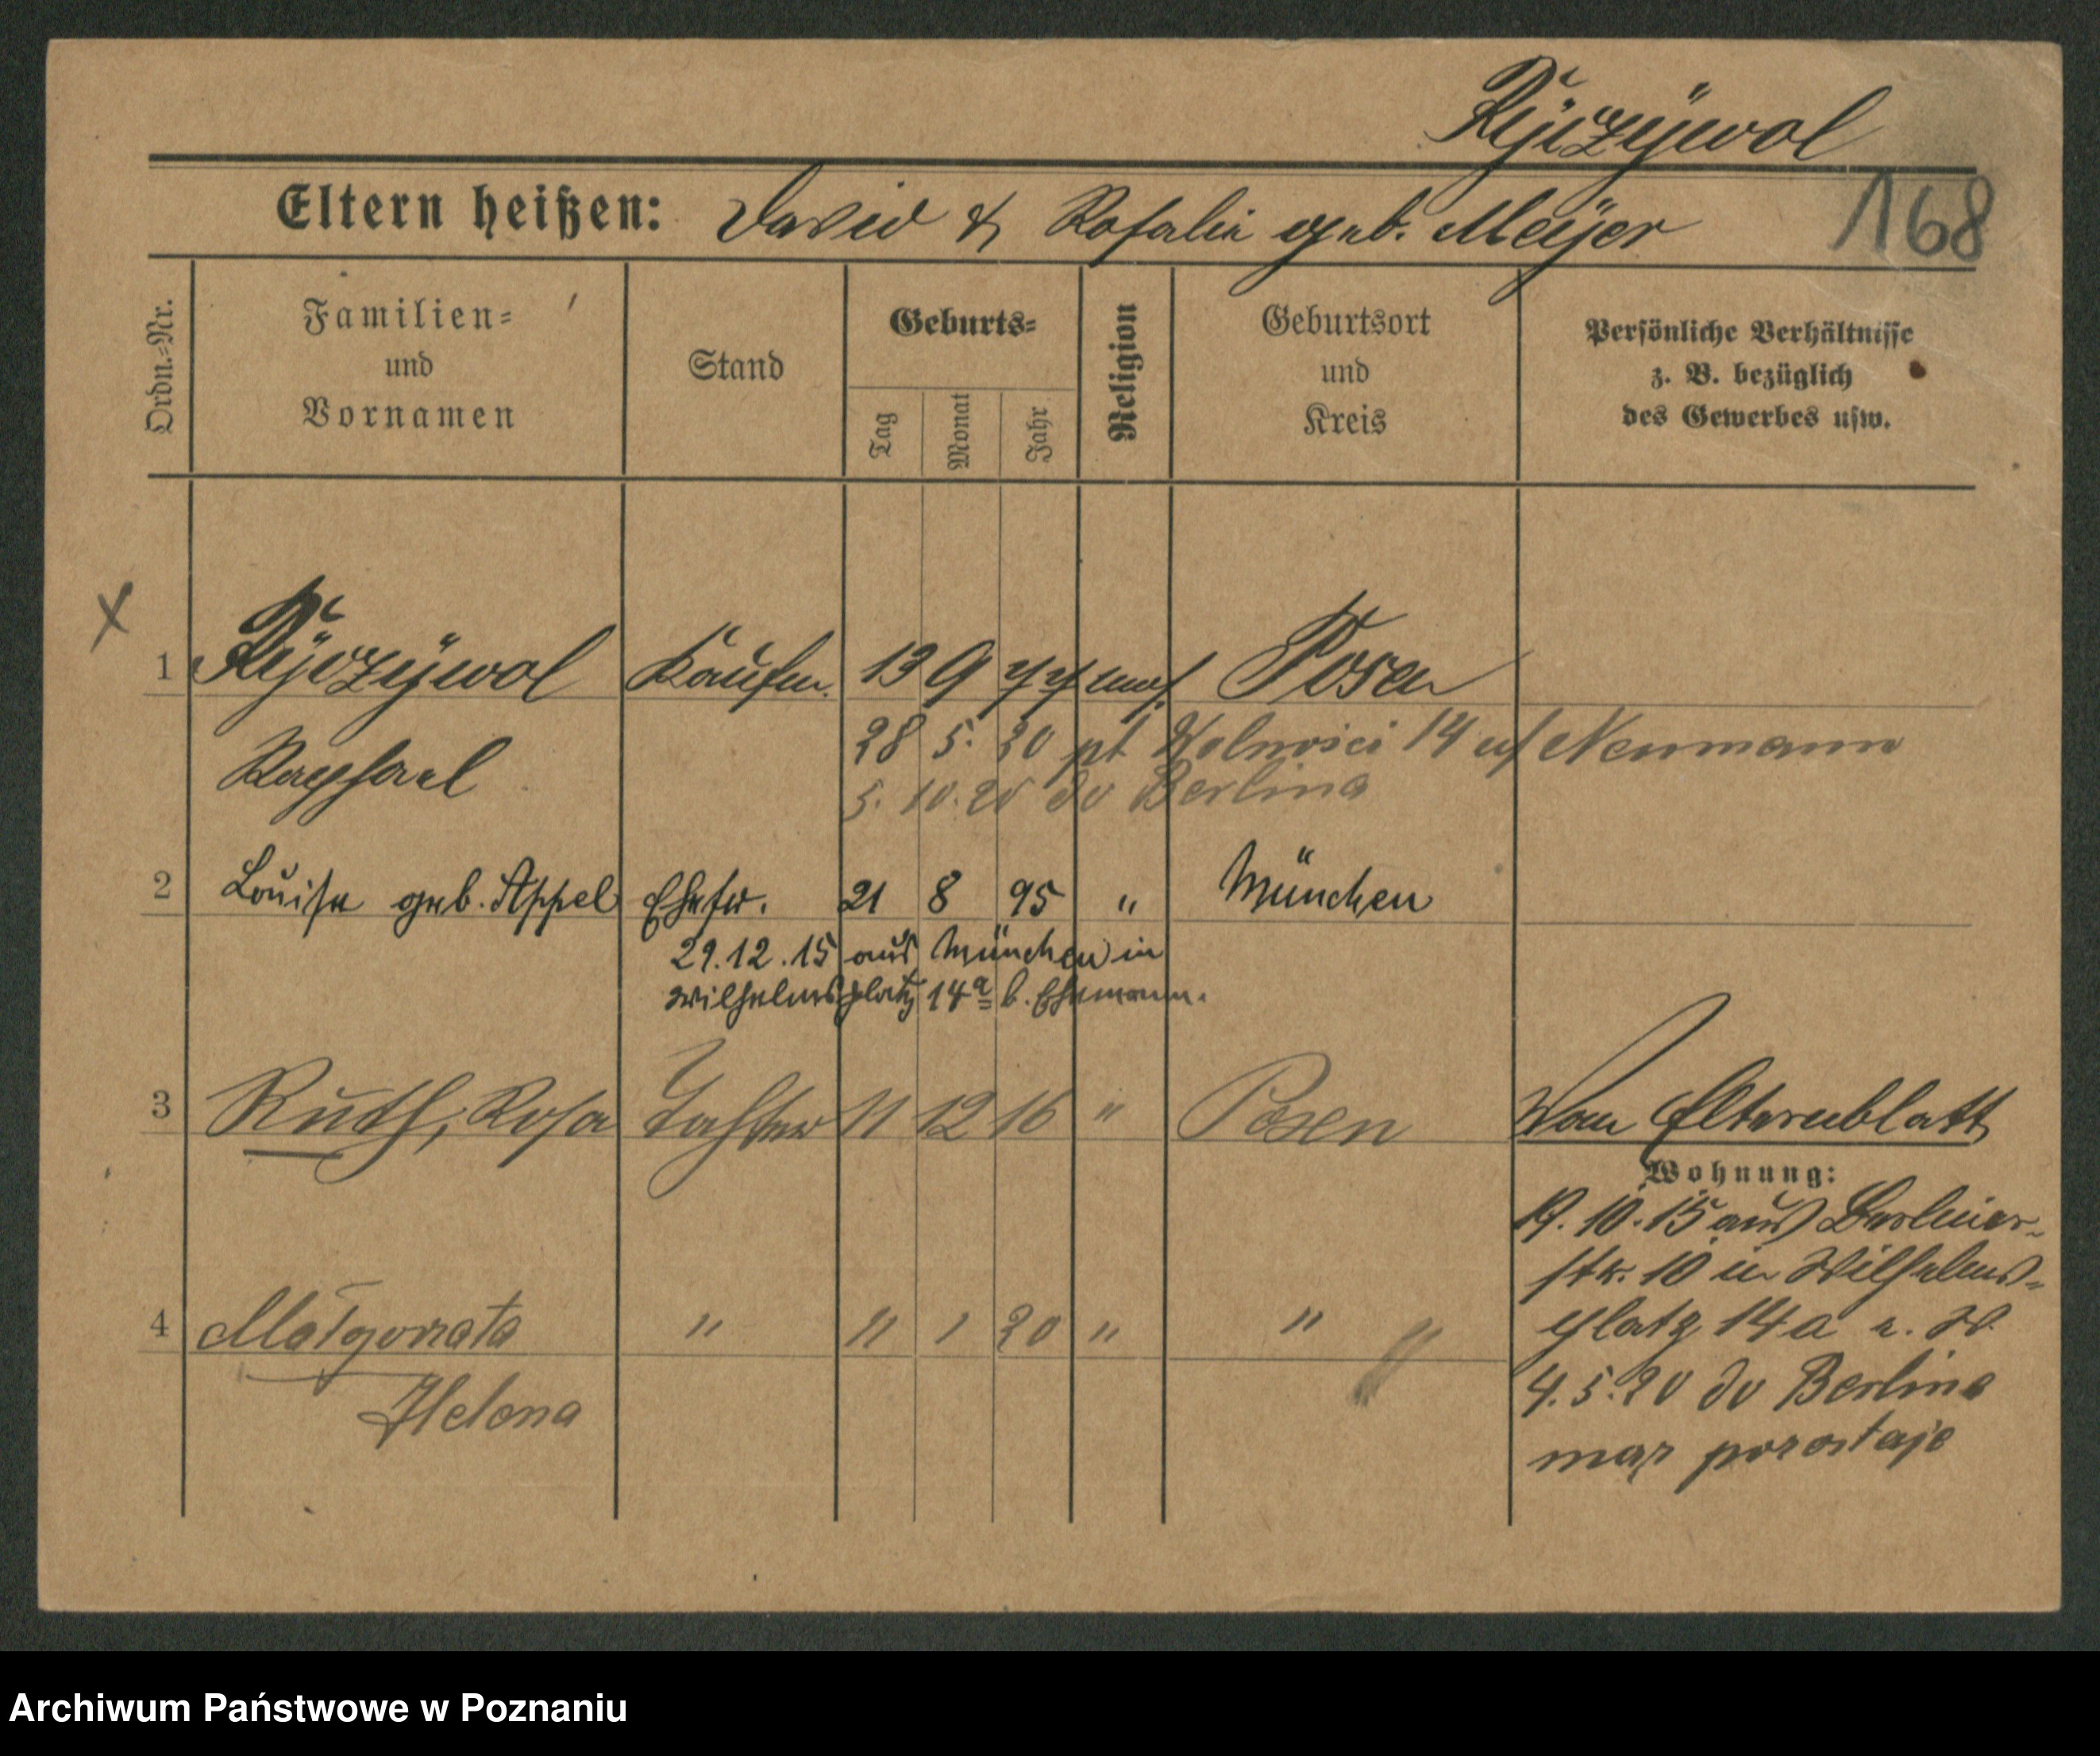 Ryczywol
Eltern heißen: David & Rosalie geb. Meyer
168
Ordn.-Nr.
Familien-
und
Vornamen
Stand
Geburts-
Tag
Monat
Jahr
Religion
Geburtsort
und
Kreis
Persönliche Verhältnisse
z. B. bezüglich
des Gewerbes usw.
X
1 Ryczywol Kaufm. 13 9 77 mos. Posen
Raphael
28 5. 20 pl Wolności 14 u/ Neumann
5. 10. 20 do Berlina
2 Louise geb. Appel Ehefr. 21 8 95 " München
29.12.15 aus München in
Wilhelmsplatz 14a b. Ehemann.
3 Ruth, Rosa Tochter 11 12 16 " Posen
Vom Elternblatt
Wohnung:
19.10.15 aus Berliner-
str. 10 in Wilhelms-
platz 14a
4 Małgorzata " 11 1 20 " "
Helena
4.5.20 do Berlina
mąż pozostaje
Archiwum Państwowe w Poznaniu